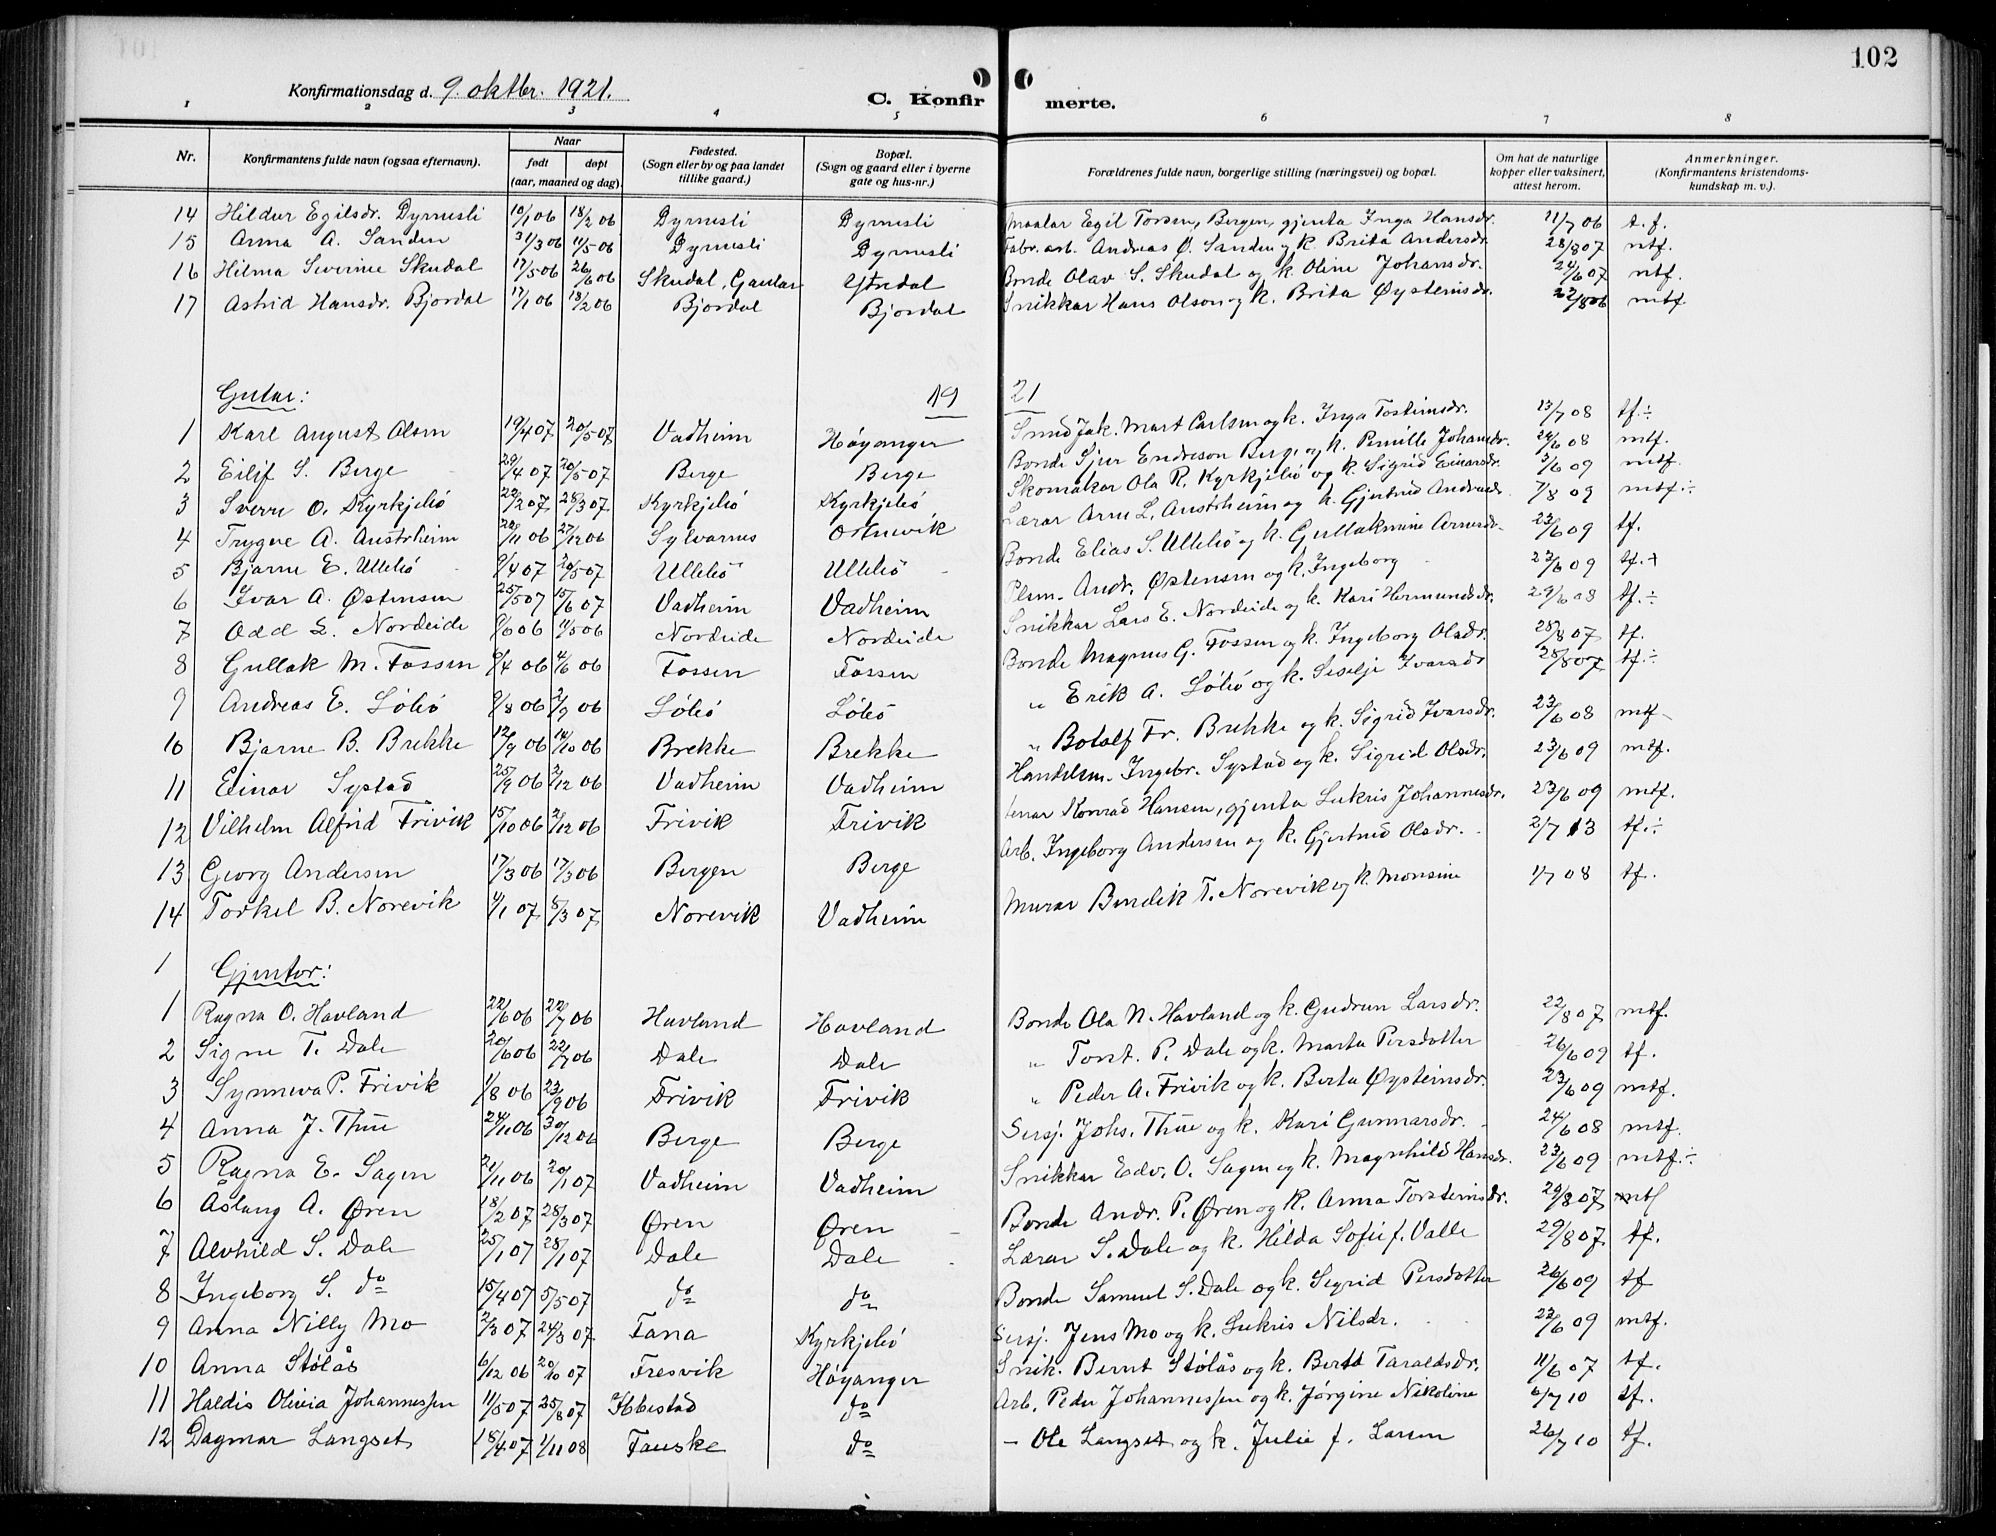 102
Konfirmationsdag d. 9. oktbr. 1921.
C. Konfirmerte.
1 2 3 4 5 6 7 8
Nr. Konfirmantens fulde navn (ogsaa efternavn). Naar født døpt (aar, maaned og dag) Fødested. (Sogn eller by og paa landet tillike gaard.) Bopæl. (Sogn og gaard eller i byerne gate og hus-nr.) Forældrenes fulde navn, borgerlige stilling (næringsvei) og bopæl. Om hat de naturlige kopper eller vaksinert, attest herom. Anmerkninger. (Konfirmantens kristendoms-kundskap m. v.).
14 Hildur Egilsdr. Dyrnesli 10/1 06 18/2 06 Dyrnesli Dyrnesli Maalar Egil Torsen, Bergen, gjenta Inga Hansdr. 11/7 06 t.f.
15 Anna A. Sanden 31/3 06 11/5 06 Dyrnesli Dyrnesli Fabr. arb. Andreas Ø. Sanden og k. Brita Andersdr. 28/8 07 mtf.
16 Hilma Severine Skudal 17/5 06 26/6 06 Skudal, Gaular Ytredal Bonde Olav S. Skudal og k. Oline Johansdr. 24/6 07 mtf.
17 Astrid Hansdr. Bjordal 17/1 06 18/2 06 Bjordal Bjordal Snikkar Hans Olson og k. Brita Øysteinsdr. 22/8 06 mtf.
Gutar: 19 21
1 Karl August Olsen 19/4 07 20/5 07 Vadheim Høyanger Smed Jak. Mart Carlsen og k. Inga Tosteinsdr. 13/7 08 tf.÷
2 Eilif S. Berge 29/4 07 20/5 07 Berge Berge Bonde Sjur Endreson Berge og k. Pernille Johansdr. 24/6 08 mtf.
3 Sverre O. Kyrkjebø 22/2 07 28/3 07 Kyrkjebø Kyrkjebø Skomakar Ola R. Kyrkjebø og k. Sigrid Einarsdr. 3/6 09 mtf.
4 Trygve A. Austrheim 22/11 06 27/12 06 Sylvarnes Ostrevik Lærar Arne L. Austrheim og k. Gjertrud Andreasdr. 7/8 09 mtf.÷
5 Bjarne E. Ullebø 9/4 07 20/5 07 Ullebø Ullebø Bonde Elias S. Ullebø og k. Gullakmine Arnesdr. 23/6 09 tf.
6 Ivar A. Østensen 25/5 07 15/6 07 Vadheim Vadheim Plsm. Andr. Østensen og k. Ingeborg 23/6 09 tf.+
7 Odd L. Nordeide 9/6 06 11/5 06 Nordeide Nordeide Snikkar Lars E. Nordeide og k. Kari Hermundsdr. 29/6 08 tf.÷
8 Gullak M. Fossen 9/4 06 4/6 06 Fossen Fossen Bonde Magnus G. Fossen og k. Ingeborg Olsdr. 28/8 07 tf.
9 Andreas E. Løbø 9/8 06 2/9 06 Løbø Løbø " Erik A. Løbø og k. Seselje Ivarsdr 28/8 07 tf.÷
10 Bjarne B. Brekke 12/9 06 14/10 06 Brekke Brekke " Botolf Fr. Brekke og k. Sigrid Ivarsdr. 23/6 08 mtf-
11 Einar Systad 25/9 06 2/12 06 Vadheim Vadheim Handelsm. Ingebr. Systad og k. Sigrid Olsdr. 23/6 09 mtf.
12 Vilhelm Alfrid Frivik 15/10 06 2/12 06 Frivik Frivik Konrad Hansen, gjenta Lukris Johannesdr. 23/6 09 mtf.
13 Georg Andersen 17/3 06 17/3 06 Bergen Berge Arb. Ingeborg Andersen og k. Gjertrud Olsdr. 2/7 13 tf.÷
14 Torkel B. Norevik 4/1 07 8/3 07 Norevik Vadheim Murar Bendik T. Norevik og k. Monsine 1/7 08 tf.
1 Gjentor:
1 Ragna O. Havland 22/6 06 22/7 06 Havland Havland Bonde Ola N. Havland og k. Gudrun Larsdr. 22/8 07 mtf.
2 Signe T. Dale 20/6 06 22/7 06 Dale Dale " Torst. P. Dale og k. Marta Persdotter 26/6 09 tf.
3 Synneva P. Frivik 1/8 06 23/9 06 Frivik Frivik " Peder A. Frivik og k. Berta Øysteinsdr. 23/6 09 mtf.
4 Anna J. Thue 24/11 06 30/12 06 Berge Berge Sersj. Johs. Thue og k. Kari Gunnarsdr. 24/6 08 mtf.
5 Ragna E. Sagen 21/11 06 20/1 07 Vadheim Vadheim Snikkar Edv. O. Sagen og k. Magnhild Hansdr. 23/6 09 mtf.÷
6 Åslaug A. Øren 18/2 07 28/3 07 Øren Øren Bonde Andr. P. Øren og k. Anna Torsteinsdr. 29/8 07 mtf
7 Alvhild S. Dale 25/1 07 28/1 07 Dale Dale Lærar S. Dale og k. Hilda Sofie f. Valle 29/8 07 tf.
8 Ingeborg S. do 15/4 07 5/5 07 do do Bonde Samuel S. Dale og k. Sigrid Persdotter 26/6 09 tf
9 Anna Nilly Mo 2/3 07 24/3 07 Fana Kyrkjebø Sersj. Jens Mo og k. Lukris Nilsdr. 22/6 09 mtf.
10 Anna Stølås 6/12 06 20/10 07 Fresvik Høyanger Snik. Bernt Stølås og k. Berta Taraldsdr. 11/6 07 tf.
11 Haldis Olivia Johannessen 11/5 07 25/8 07 Ibbestad do Arb. Peder Johannessen og k. Jørgine Nikoline 6/7 10 tf.
12 Dagmar Langset 18/4 07 1/11 08 Fauske do - Ole Langset og k. Julie f. Larsen 26/7 10 tf.